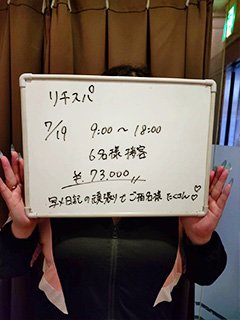 リチスパ
7/19 9:00〜18:00
6名様接客
¥73,000
写メ日記の頑張りでご指名様たくさん♡♡